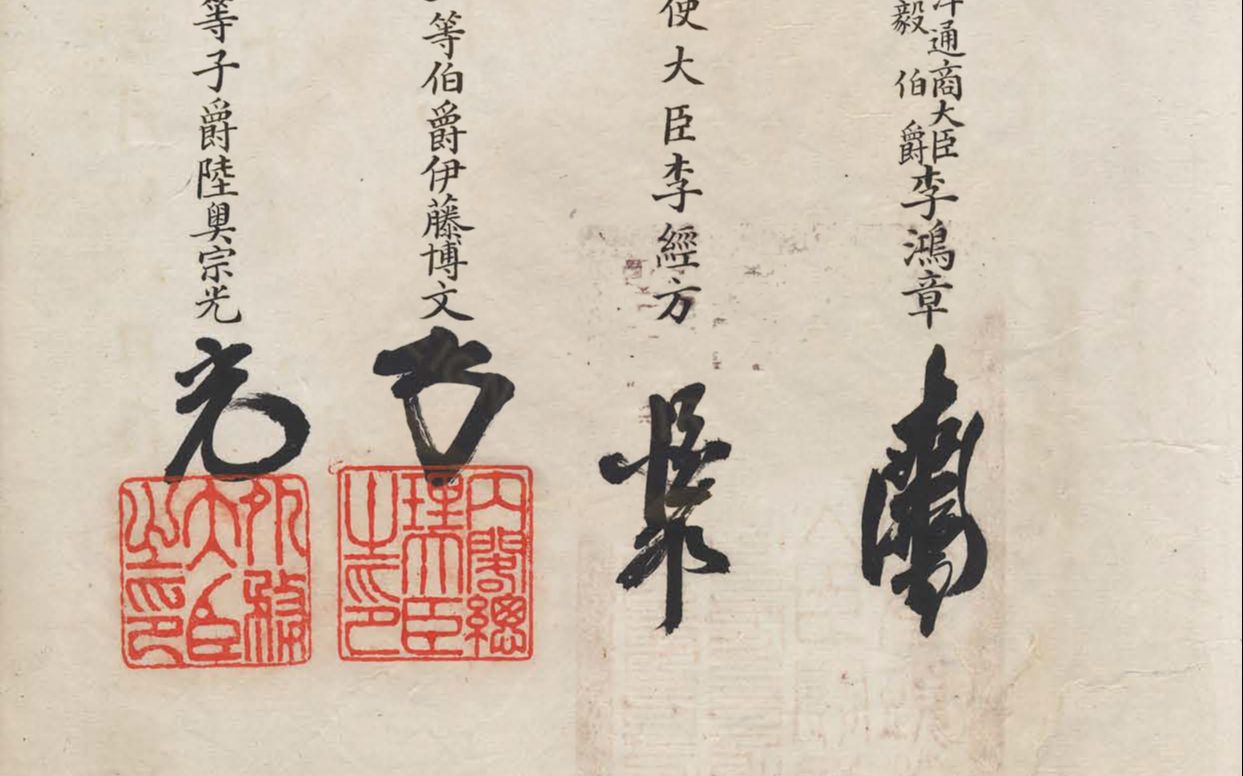 通商大臣
毅伯爵
李鴻章
使大臣李經方
等伯爵伊藤博文
內閣總
理大臣
之印
等子爵陸奥宗光
外務
大臣
之印